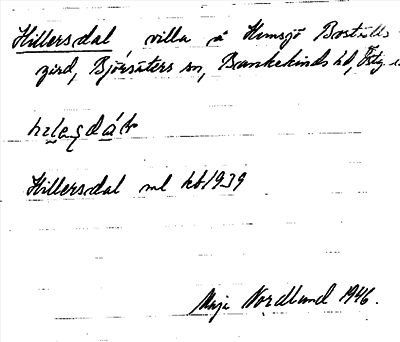 Hillersdal villa å Hemsjö Boställs
gärd, Björsäters sn, Bankekinds hd, Östg.
Hillersdal ml kb 1939
Maja Nordlund 1946.